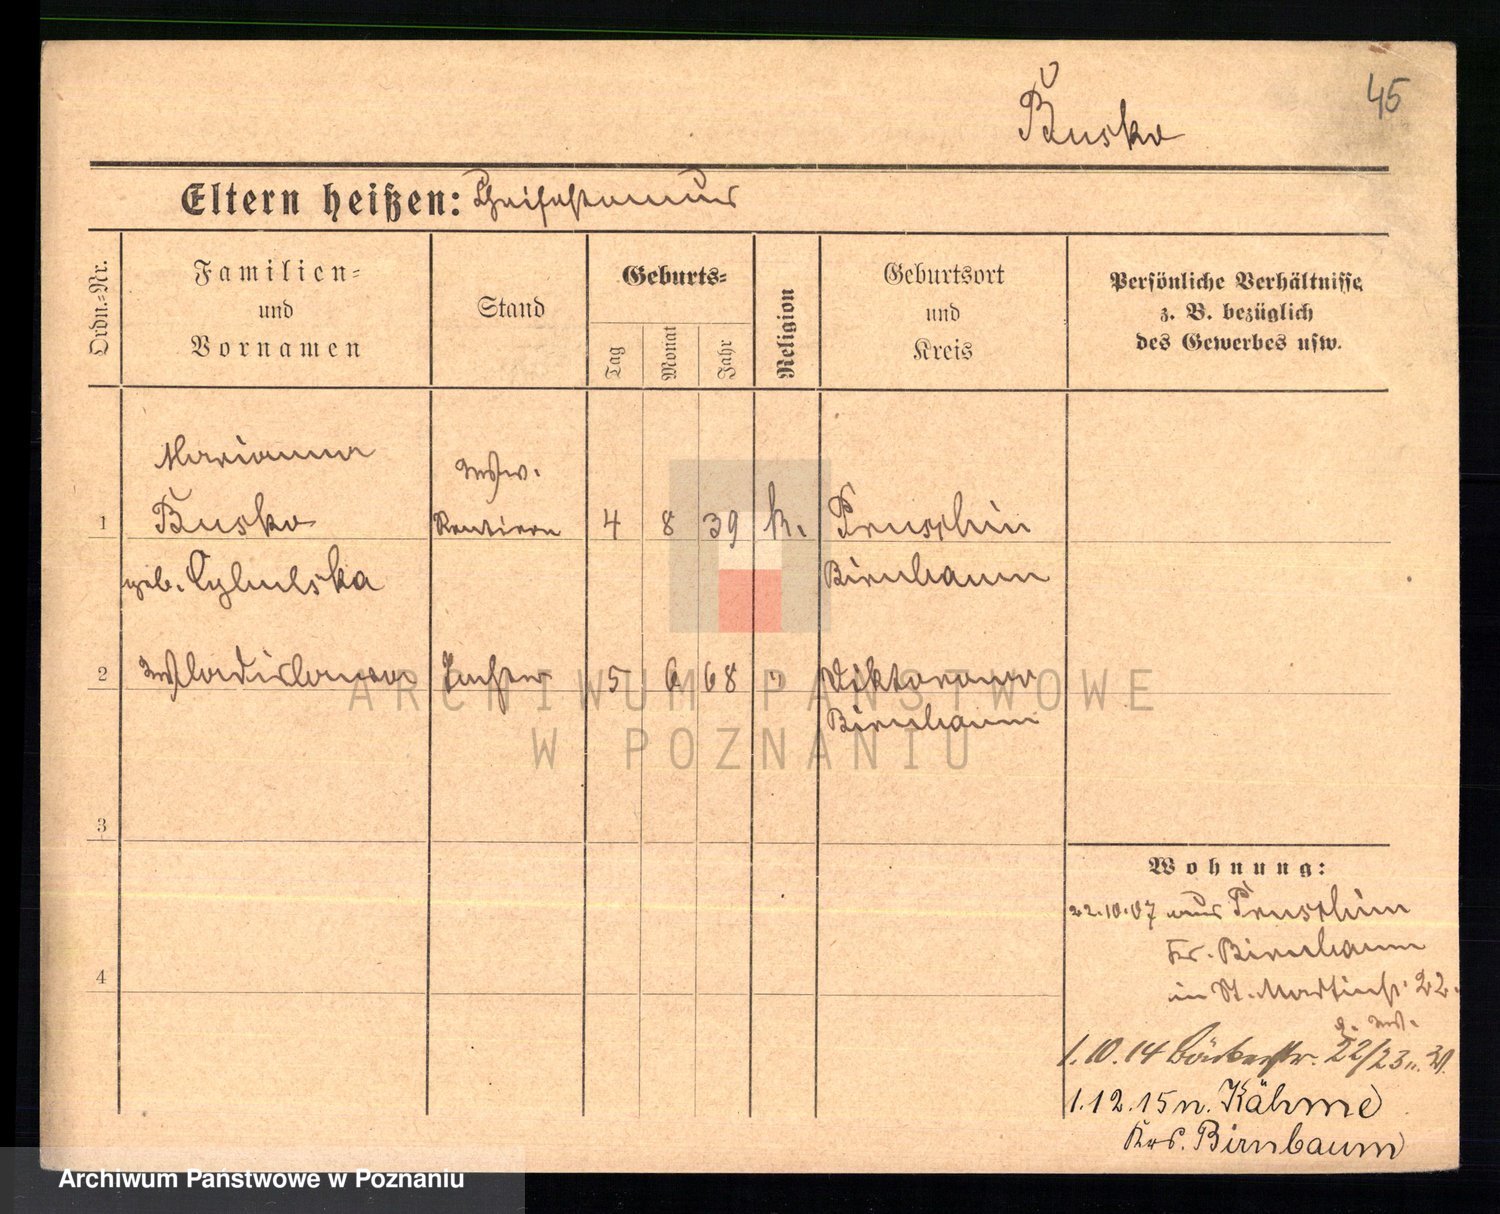 45
Busko
Eltern heißen:
Ordn.-Nr.
Familien-
und
Vornamen
Stand
Geburts-
Tag
Monat
Jahr
Religion
Geburtsort
und
Kreis
Persönliche Verhältnisse
z. B. bezüglich
des Gewerbes usw.
Marianna
Ww.
1 Busko Rentiere 4 8 39 k. Pruschin
geb. Cybulska Birnbaum
2 Wladislawa Tochter 5 6 68 " Viktorowo
Birnbaum
3
4
Wohnung:
22.10.07 aus Pruschim
Kr. Birnbaum
in St. Martinstr. 22.
1.10.14 Bäckerstr. 22/23
1.12.15 n. Kähme
Krs. Birnbaum
ARCHIWUM PAŃSTWOWE
W POZNANIU
Archiwum Państwowe w Poznaniu